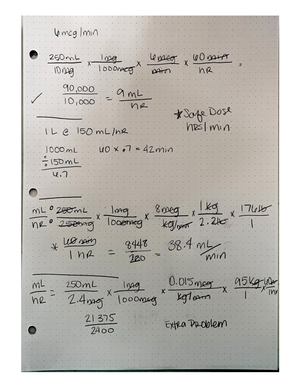 6 mcg/min
250mL/10mg × 1mg/1000mcg × 6mcg/min × 60min/HR =
✓ 90,000/10,000 = 9 mL/HR
*Safe Dose
HRS/min
1L @ 150 mL/HR
1000mL ÷ 150mL 60 × .7 = 42min
6.7
mL/HR = 250mL/250mg × 1mg/1000mcg × 8mcg/kg/min × 1kg/2.2lb × 176lb/1
* 60min/1HR = 8448/220 = 38.4 mL/min
mL/HR = 250mL/2.4mg × 1mg/1000mcg × 0.015mcg/kg/min × 95kg/1 ×
21375/2400 Extra Problem